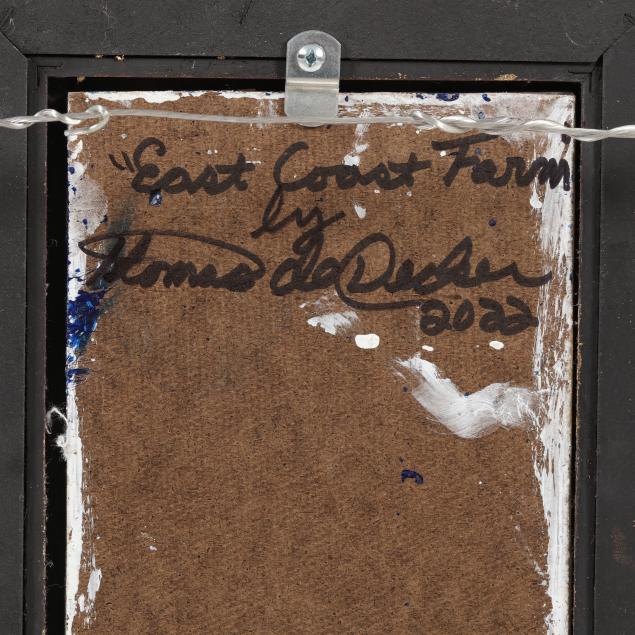 "East Coast Farm
by
Thomas de Decker
2022